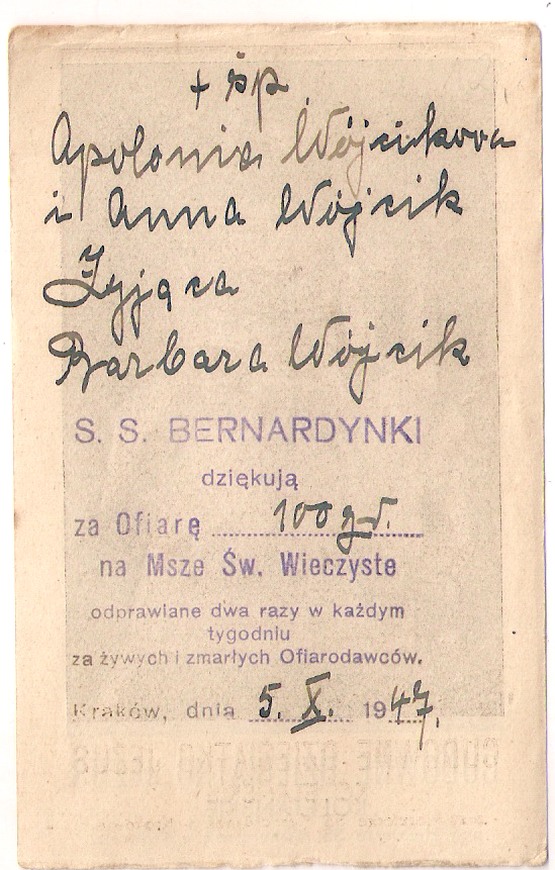 + śp
Apolonia Wójcikowa
i Anna Wójcik
Żyjąca
Barbara Wójcik
S. S. BERNARDYNKI
dziękują
za Ofiarę 100 zł.
na Msze Św. Wieczyste
odprawiane dwa razy w każdym
tygodniu
za żywych i zmarłych Ofiarodawców.
Kraków, dnia 5. X. 1947.